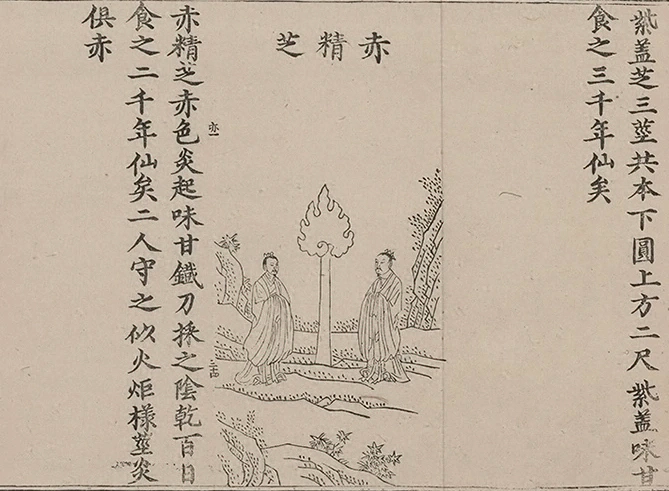 紫盖芝三莖共本下圓上方二尺紫盖味甘
食之三千年仙矣
赤精芝
赤精芝赤色炎起味甘鐡刀採之陰乾百日
食之二千年仙矣二人守之似火炬樣莖炎
俱赤